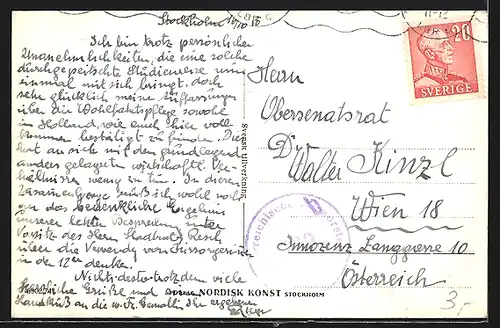 Stockholm
Ich bin trotz persönlicher
Unannehmlichkeiten, die eine solche
durchgepeitschte Studienreise nun
einmal mit sich bringt, doch
sehr glücklich meine Auffassungen
über die Wohlfahrtspflege sowohl
in Holland wie auch hier voll-
kommen bestätigt zu finden. Das
hat an sich mit den grundlegend
anders gelagerten wirtschaftl. Ver-
hältnissen wenig zu tun. In diesem
Zusammenhange muß ich wohl noch
an das bedenkliche Ergebnis
unserer letzten Besprechung unter
Vorsitz des Herrn Stadtrates Resch
über die Verwendg von Fürsorgerinnen
in den 12 denken.
Nichtsdestotrotzdem viele
herzliche Grüße und
Handkuß an die w. Fr. Gemahlin Ihr ergebener
Svensk tillverkning
NORDISK KONST STOCKHOLM
20
SVERIGE
Herrn
Obersenatsrat
Dr Walter Kinzl
Wien 18
Innozenz Langgasse 10
Österreich
3,-